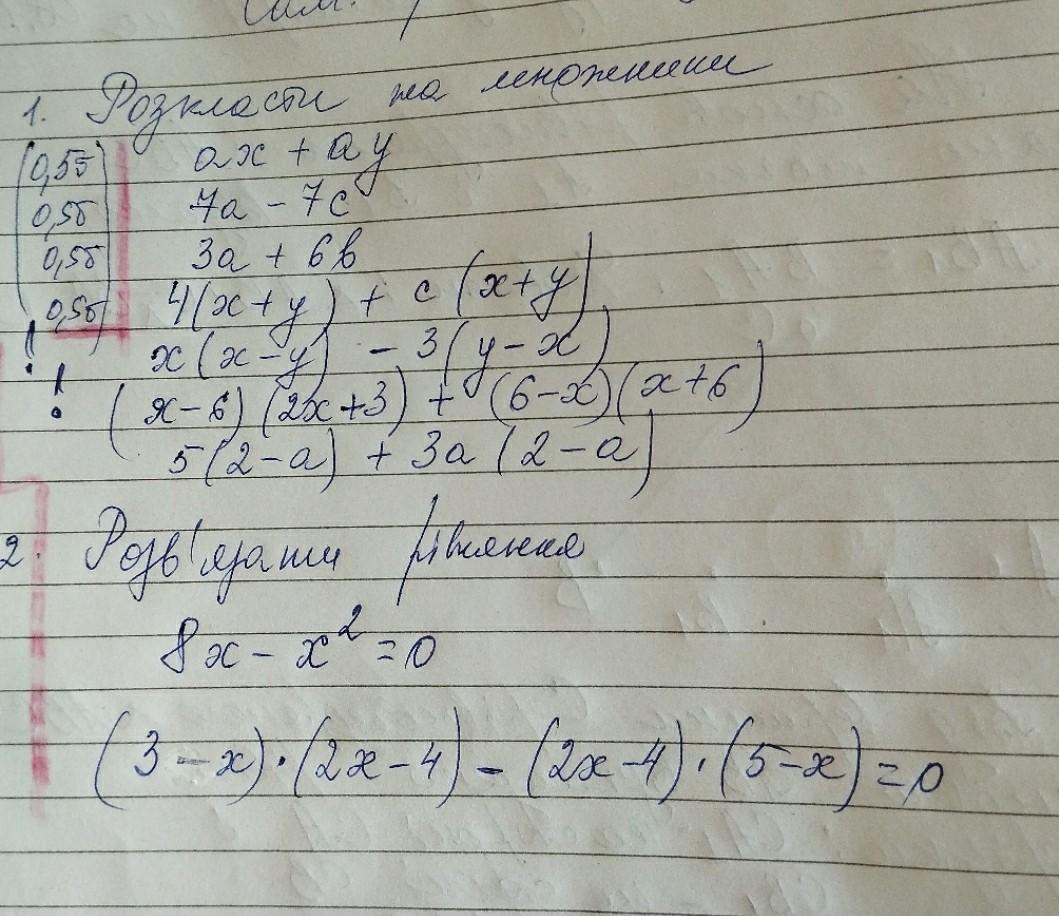 Сам.
1. Розкласти на множники
(0,5б) ax + ay
0,5б 7a - 7c
0,5б 3a + 6b
0,5б 4(x+y) + c(x+y)
! x(x-y) - 3(y-x)
! (x-6)(2x+3) + (6-x)(x+6)
5(2-a) + 3a(2-a)
2. Розв'язати рівняння
8x - x² = 0
(3-x)·(2x-4) - (2x-4)·(5-x) = 0